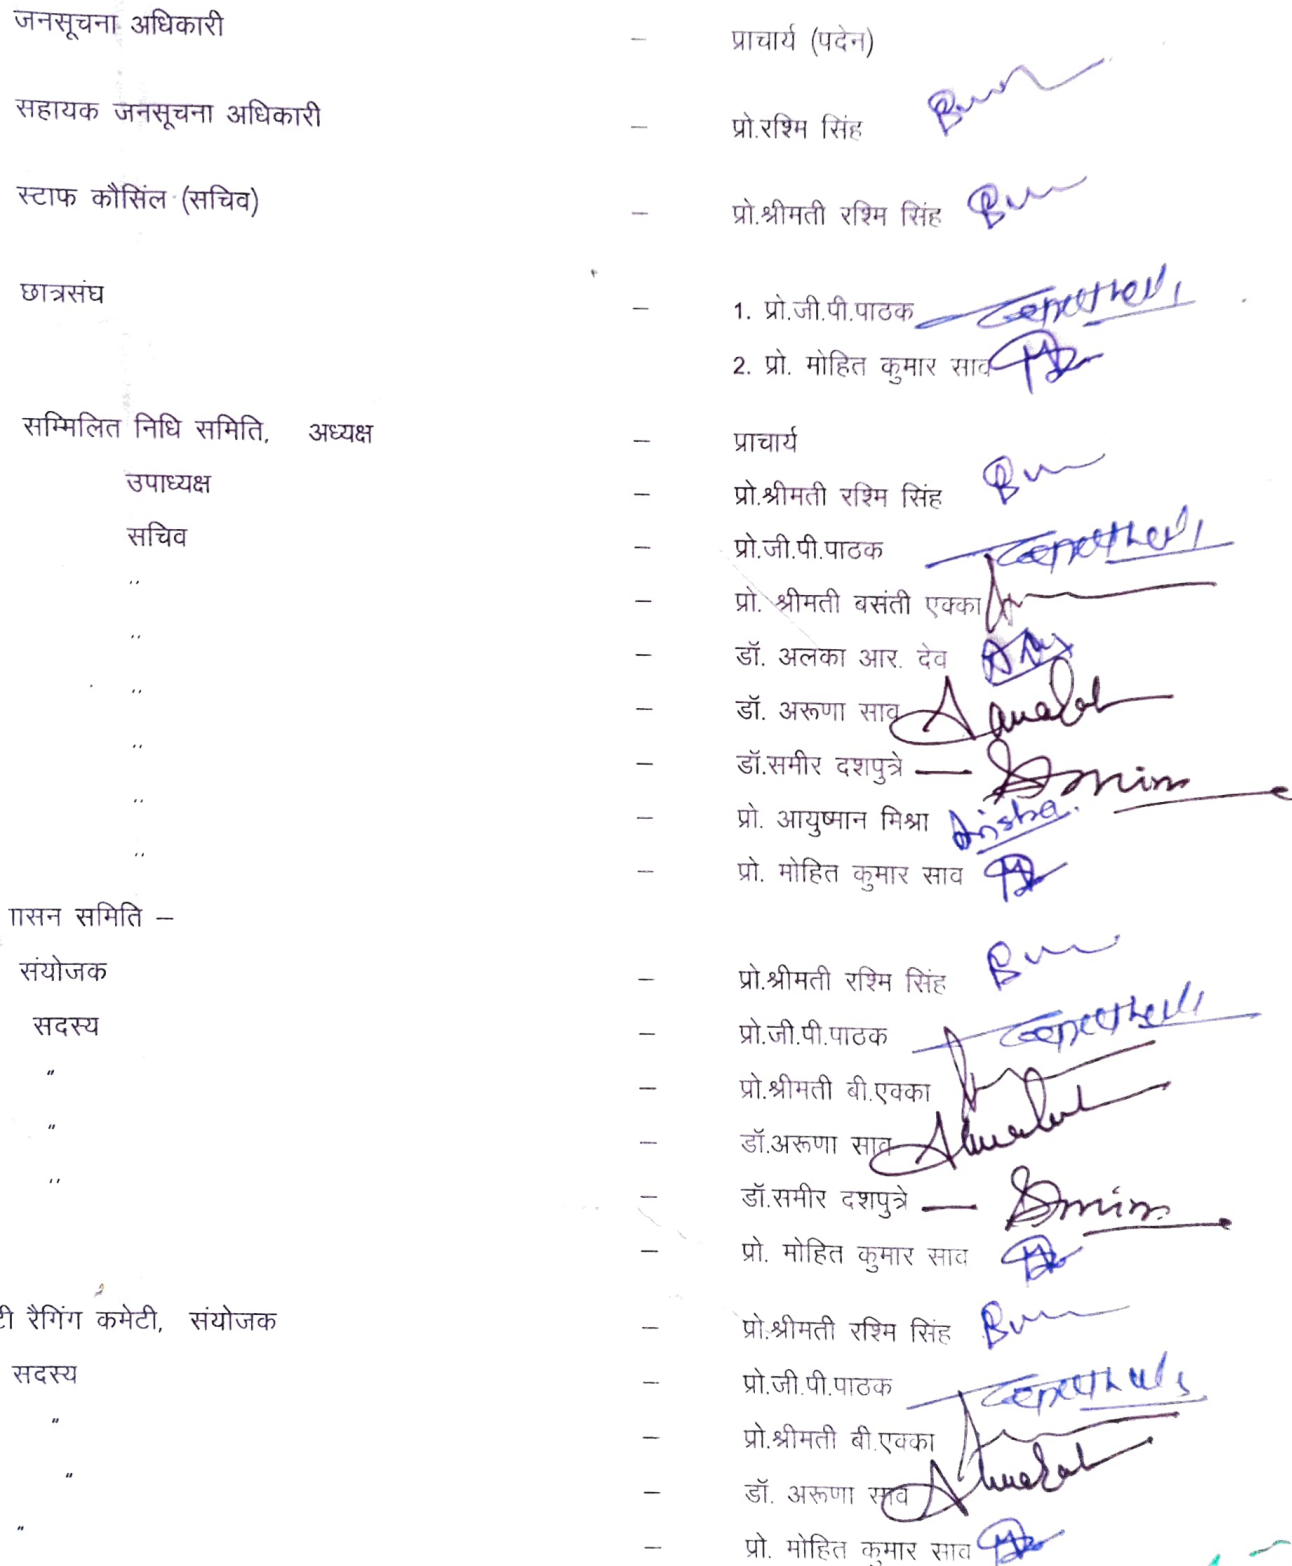 जनसूचना अधिकारी – प्राचार्य (पदेन)
सहायक जनसूचना अधिकारी – प्रो.रश्मि सिंह
स्टाफ कौसिंल (सचिव) – प्रो.श्रीमती रश्मि सिंह
छात्रसंघ – 1. प्रो.जी.पी.पाठक
2. प्रो. मोहित कुमार साव
सम्मिलित निधि समिति, अध्यक्ष – प्राचार्य
उपाध्यक्ष – प्रो.श्रीमती रश्मि सिंह
सचिव – प्रो.जी.पी.पाठक
,, – प्रो. श्रीमती बसंती एक्का
,, – डॉ. अलका आर. देव
,, – डॉ. अरूणा साव
,, – डॉ.समीर दशपुत्रे
,, – प्रो. आयुष्मान मिश्रा
,, – प्रो. मोहित कुमार साव
ासन समिति –
संयोजक – प्रो.श्रीमती रश्मि सिंह
सदस्य – प्रो.जी.पी.पाठक
" – प्रो.श्रीमती बी.एक्का
" – डॉ.अरूणा साव
,, – डॉ.समीर दशपुत्रे
– प्रो. मोहित कुमार साव
टी रैगिंग कमेटी, संयोजक – प्रो.श्रीमती रश्मि सिंह
सदस्य – प्रो.जी.पी.पाठक
" – प्रो.श्रीमती बी.एक्का
" – डॉ. अरूणा साव
" – प्रो. मोहित कुमार साव